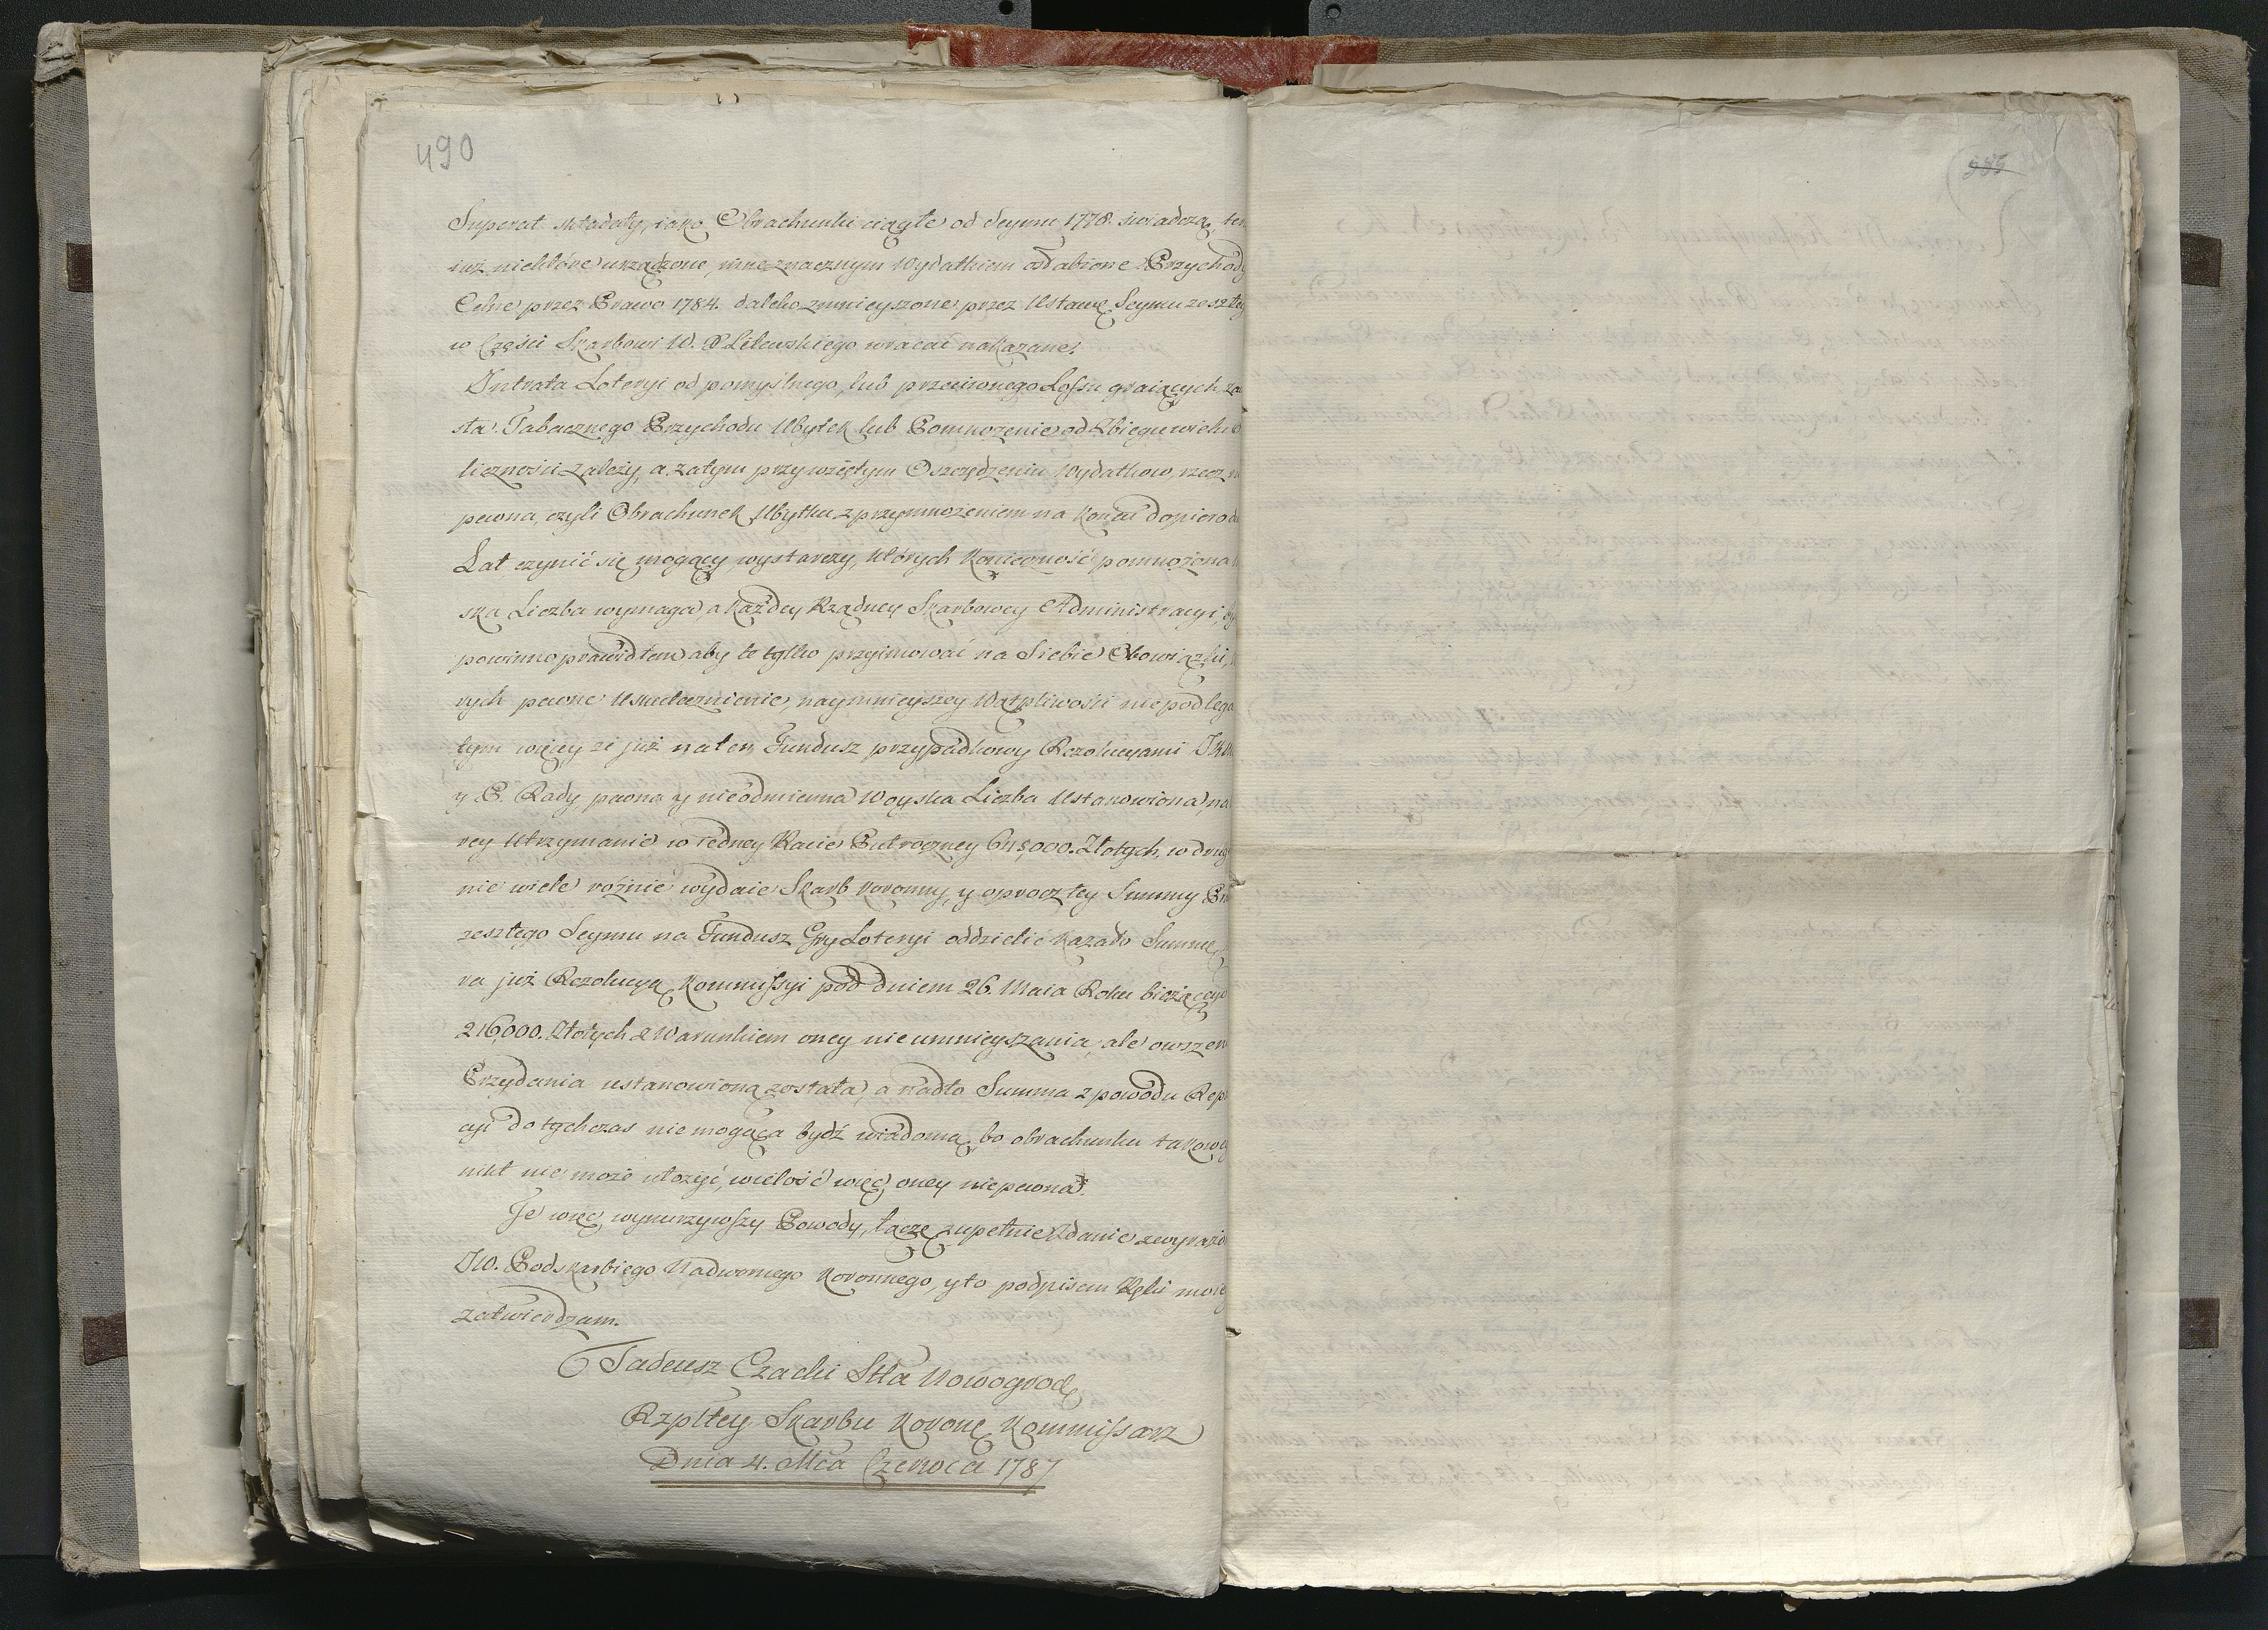 490
Superat składały, iako Obrachunki ciągłe od Seymu 1778. świadczą, ter
iuż niektóre urządzone, inne znacznym Wydatkiem osłabione Przychody
Celne przez Prawo 1784. daleko zmnieyszone przez Ustawę Seymu zeszłeg
w Części Skarbowi W. X Litewskiego wracać nakazane.
Intrata Loteryi od pomyślnego, lub przeciwnego Lossu graiących za
sta. Tabacznego Przychodu Ubytek lub Pomnożenie od Zbiegu wielu O
liczności zależy, a zatym przy wziętym Oszczędzeniu Wydatkow, rzecz n
pewna, czyli Obrachunek Ubytku z przymnożeniem na Końcu dopiero d
Lat czynić się mogący wystarczy, których Konieczność pomnożona
ska Liczba wymaga, a Każdey Rządney Skarbowey Administracyi, by
powinno prawidłem aby te tylko przyimować na Siebie Obowiązki,
rych pewne Uskutecznienie, naymnieyszey Wątpliwości nie podlega
tym więcy że już na ten Fundusz przypadkowy Rezolucyami JKM
y P. Rady, pewna y nieodmienna Woyska Liczba Ustanowiona, na
rey Utrzymanie w Jedney Racie Putroczney 645,000. Złotych, w drug
nie wiele różnie wydaie Skarb Koronny, y oprocz tey Summy Pr
zeszłego Seymu na Fundusz Gry Loteryi oddzielić Kazało Summę
ra już Rezolucyą Kommissyi pod dniem 26. Maia Roku bieżącego
216,000. Złotych z Warunkiem oney nie umnieyszania, ale owszem
Przydania ustanowioną została, a nadto Summa z powodu Rep
cyi dotychczas nie mogąca bydź wiadomą, bo obrachunku takowe
nikt nie może ułożyć, wielość więc oney niepewna.
Je więc wynurzywszy Powody, łączę zupełnie Zdanie z wyrazi
JW. Podskarbiego Nadwornego Koronnego, y to podpisem Ręki moiey
zatwierdzam.
Tadeusz Czacki Stta Nowogrodz
Rzpltey Skarbu Koronę Kommissarz
Dnia 4. Mca Czerwca 1787